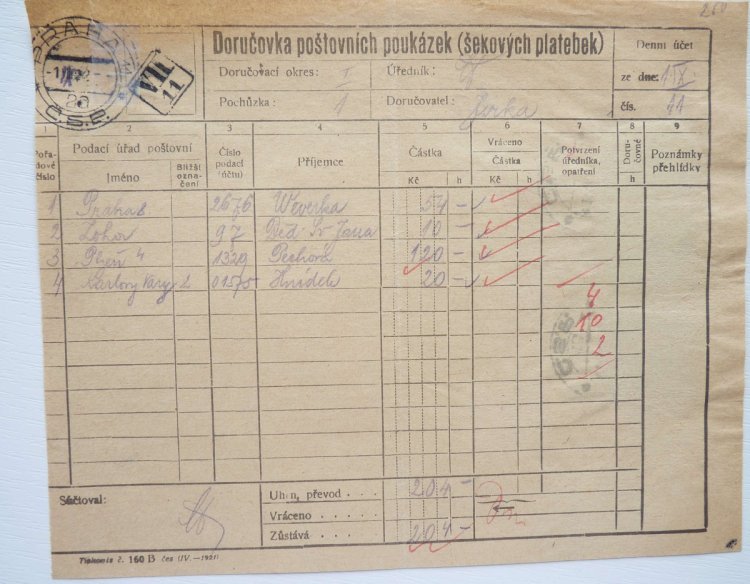 PRAHA
25
Č.S.P.
VII
11
Doručovka poštovních poukázek (šekových platebek)
Doručovací okres: I Úředník:
Pochůzka: 1 Doručovatel: Jirka
Denní účet
ze dne: 1 X.
čís. 11
1 2 3 4 5 6 7 8 9
Pořadové číslo
Podací úřad poštovní
Jméno
Bližší označení
Číslo podací (účtu)
Příjemce
Částka
Kč h
Vráceno
Částka
Kč h
Potvrzení úředníka, opatření
Doručovné
h
Poznámky přehlídky
1 Praha 8 2676 Weverka 54 –
2 97 10 –
3 Plzeň 4 1329 120 –
4 Karlovy Vary 2 01575 20 –
4
10
2
Součtoval:
Úhrn, převod . . . . 204 –
Vráceno . . . . .
Zůstává . . . . . 204 –
Tiskopis č. 160 B čes (IV.—1921)